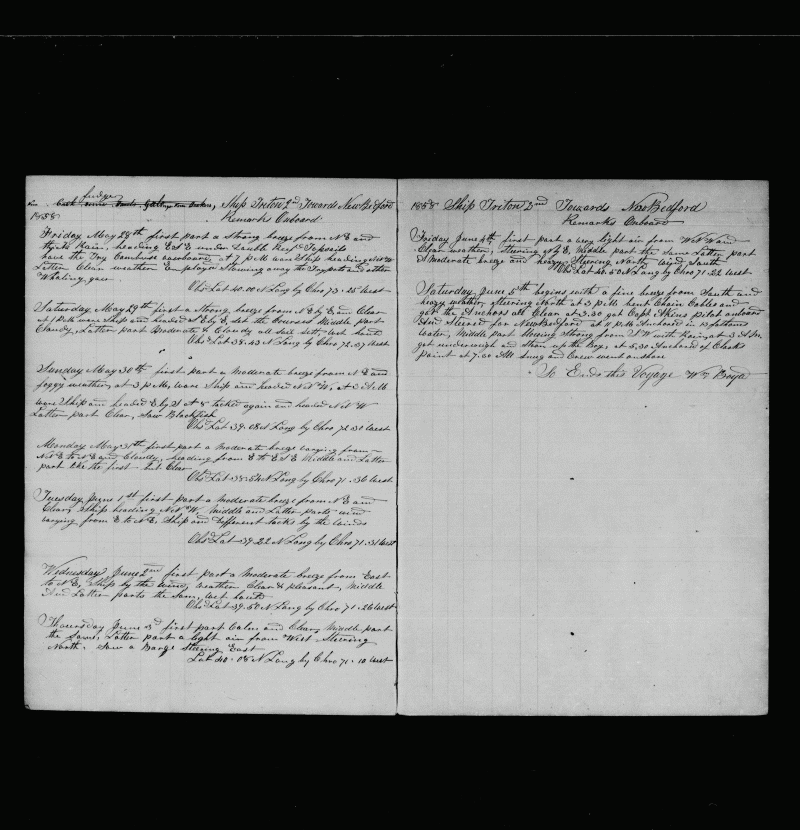 Ship Triton 2nd Towards New Bedford
1858
Remarks Onboard
Friday May 28th first part a Strong breeze from N E and
thick Rain, heading ESE under Double Reef Topsails
at 7 P M wore Ship heading N N W
Latter Clear weather Employed Stowing away the and other
Whaling gear
Obsd Lat 40.00 N Long by Chro 73.25 West
Saturday May 29th first a Strong breeze from N E by E and Clear
at 1 P M wore Ship and headed E by S, set the Courses Middle part
Cloudy, Latter part Moderate & Cloudy all sail set
Obsd Lat 38.43 N Long by Chro 72.37 West
" "
Sunday May 30th first part a Moderate breeze from N E and
foggy weather, at 3 P M, wore Ship and headed N N W, at A M
wore Ship and headed E by S at 8 tacked again and headed N N W
Latter part Clear, Saw Blackfish
Obsd Lat 39.08 N Long by Chro 72.30 West
Monday May 31st first part a Moderate breeze varying from
N N E to N E and Cloudy, heading from E to E S E Middle and Latter
part like the first but Clear
Obsd Lat 38.54 N Long by Chro 71.36 West
Tuesday June 1st first part a Moderate breeze from N E and
Clear, Ship heading N N W, Middle and Latter parts wind
varying from E to N E, Ship and different tacks by the winds
Obsd Lat 39.22 N Long by Chro 71.31 West
Wednesday June 2nd first part a Moderate breeze from East
to N E, Ship by the wind, weather Clear & pleasant, Middle
And Latter parts the Same
Obsd Lat 39.50 N Long by Chro 71.26 West
Thursday June 3d first part Calm and Clear, Middle part
the Same, Latter part a light air from West Steering
North. Saw a Barge Steering East
Lat 40.05 N Long by Chro 71.10 West
1858 Ship Triton 2nd Towards New Bedford
Remarks Onboard
Friday June 4th first part a very light air from W N W and
Clear weather, Steering N E, Middle part the Same Latter part
a Moderate breeze and hazy, Steering North, wind South
Obsd Lat 40.50 N Long by Chro 71.22 West
Saturday June 5th begins with a fine breeze from South and
hazy weather, Steering North at 2 P M bent Chain Cables and
got the Anchors all Clear at 3.30 got Capt Pilot onboard
And Steered for New Bedford at 11 P M Anchored in 10 fathoms
water, Middle part blowing Strong from S W with Rain, at 3 A M
got underweigh and Stood up the Bay, at 5.30 Anchored of Clarks
point at 7.00 All Snug and Crew went onshore
So Ends this Voyage Wm Boyd